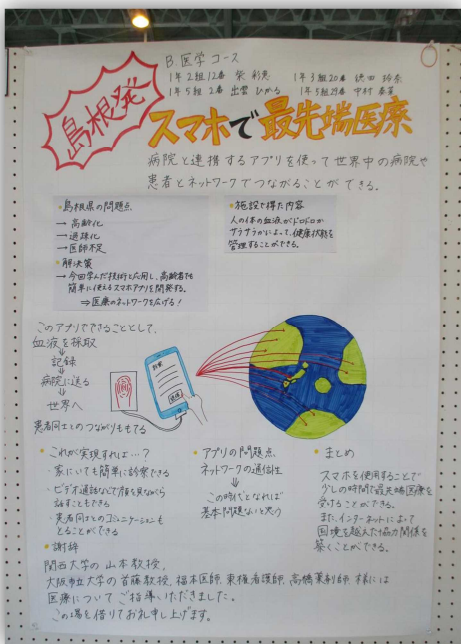 B.医学コース
1年2組12番 柴 彩恵 1年3組20番 玲奈
1年5組2番 出雲 ひかる 1年5組29番 中村 春菜
島根発
スマホで最先端医療
病院と連携するアプリを使って世界中の病院や
患者とネットワークでつながることができる。
・島根県の問題点
→ 高齢化
→ 過疎化
→ 医師不足
・解決策
→ 今回学んだ技術を応用し、高齢者でも
簡単に使えるスマホアプリを開発する。
⇒医療のネットワークを広げる!
・施設で得た内容
人の体の血液がドロドロか
サラサラかによって、健康状態を
管理することができる。
このアプリでできることとして、
血液を採取
↓
記録
↓
病院に送る
↓
世界へ
患者同士とのつながりももてる
送信
・これが実現すれば…?
・家にいても簡単に診察できる
・ビデオ通話などで顔を見ながら
話すこともできる
・患者同士とのコミュニケーションも
とることができる
・アプリの問題点
ネットワークの通信性
↓
この時代となれば
基本問題ないと思う
・まとめ
スマホを使用することで
少しの時間で最先端医療を
受けることができる。
また、インターネットによって
国境を越えた協力関係を
築くことができる。
・謝辞
関西大学の山本教授、
大阪市立大学の首藤教授、福本医師、東権看護師、高橋薬剤師 様には
医療についてご指導いただきました。
この場を借りてお礼申し上げます。